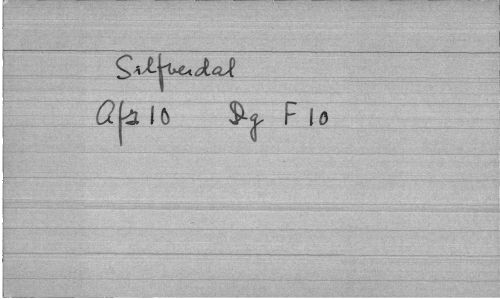 Silfverdal
Afs 10 Dg F 10